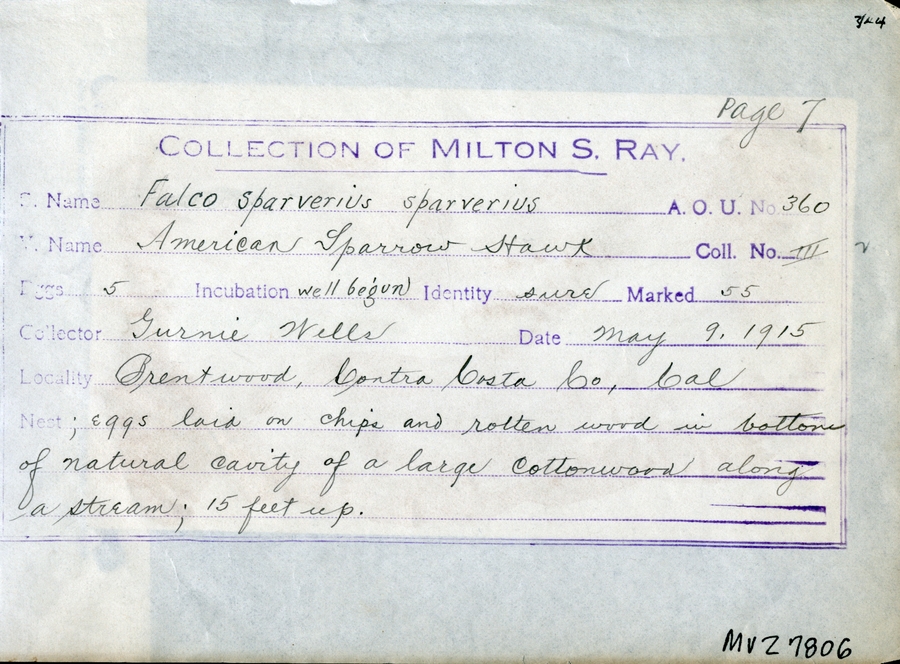 Page 7
COLLECTION OF MILTON S. RAY.
S. Name Falco sparverius sparverius A. O. U. No. 360
V. Name American Sparrow Hawk Coll. No. III
Eggs 5 Incubation well begun Identity sure Marked 55
Collector Gurnie Wells Date May 9, 1915
Locality Brentwood, Contra Costa Co, Cal
Nest ; eggs laid on chips and rotten wood in bottom
of natural cavity of a large cottonwood along
a stream; 15 feet up.
MVZ 7806